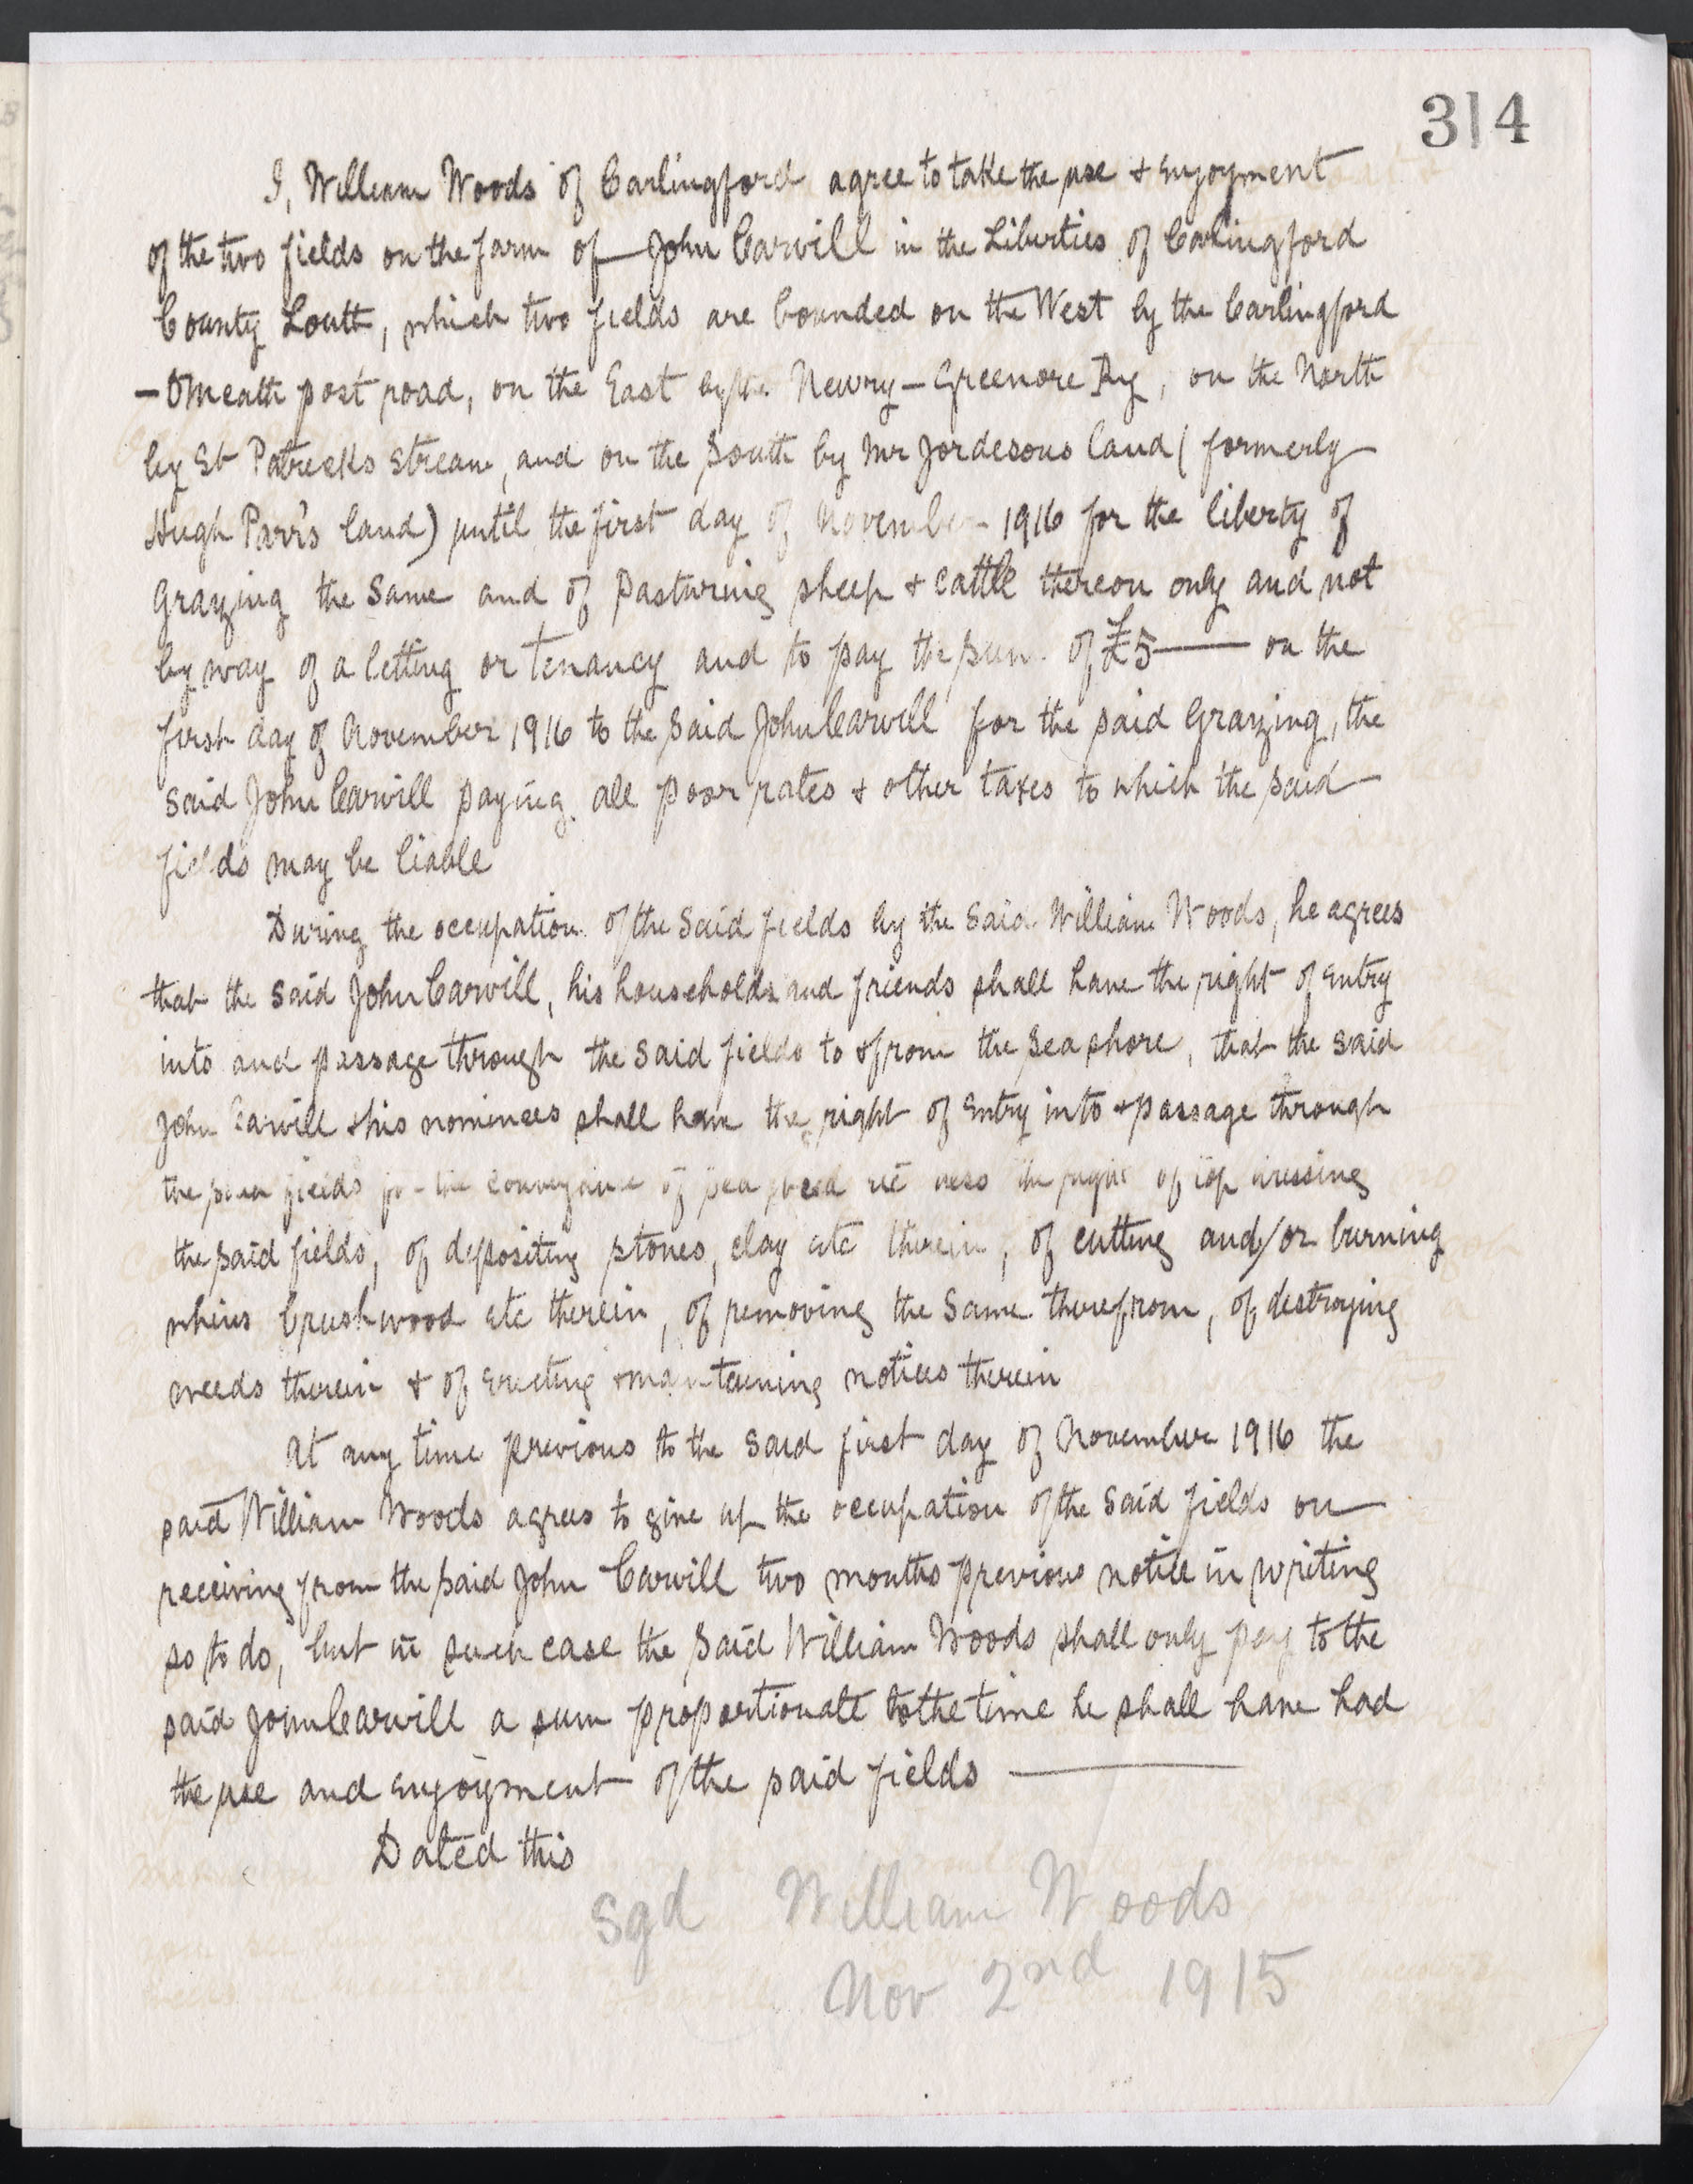 314
I, William Woods of Carlingford agree to take the use & enjoyment
of the two fields on the farm of John Carvill in the Liberties of Carlingford
County Louth, which two fields are bounded on the West by the Carlingford
- Omeath post road, on the East by the Newry - Greenore Ry, on the North
by St Patricks stream, and on the South by Mr Jordesons land (formerly
Hugh Parr's land) until the first day of November 1916 for the liberty of
grazing the same and of pasturing sheep & cattle thereon only and not
by way of a letting or tenancy and to pay the sum of £5 —— on the
first day of November 1916 to the said John Carvill for the said grazing, the
said John Carvill paying all poor rates & other taxes to which the said
fields may be liable
During the occupation of the said fields by the said William Woods, he agrees
that the said John Carvill, his households and friends shall have the right of entry
into and passage through the said fields to & from the sea shore, that the said
John Carvill & his nominees shall have the right of entry into & passage through
the said fields for the conveyance of sea weed etc also the right of top dressing
the said fields, of depositing stones, clay etc therein, of cutting and/or burning
whins brushwood etc therein, of removing the same therefrom, of destroying
weeds therein & of erecting & maintaining notices therein
At any time previous to the said first day of November 1916 the
said William Woods agrees to give up the occupation of the said fields on
receiving from the said John Carvill two months previous notice in writing
so to do, but in such case the said William Woods shall only pay to the
said John Carvill a sum proportionate to the time he shall have had
the use and enjoyment of the said fields ——
Dated this
Sgd William Woods
Nov 2nd 1915